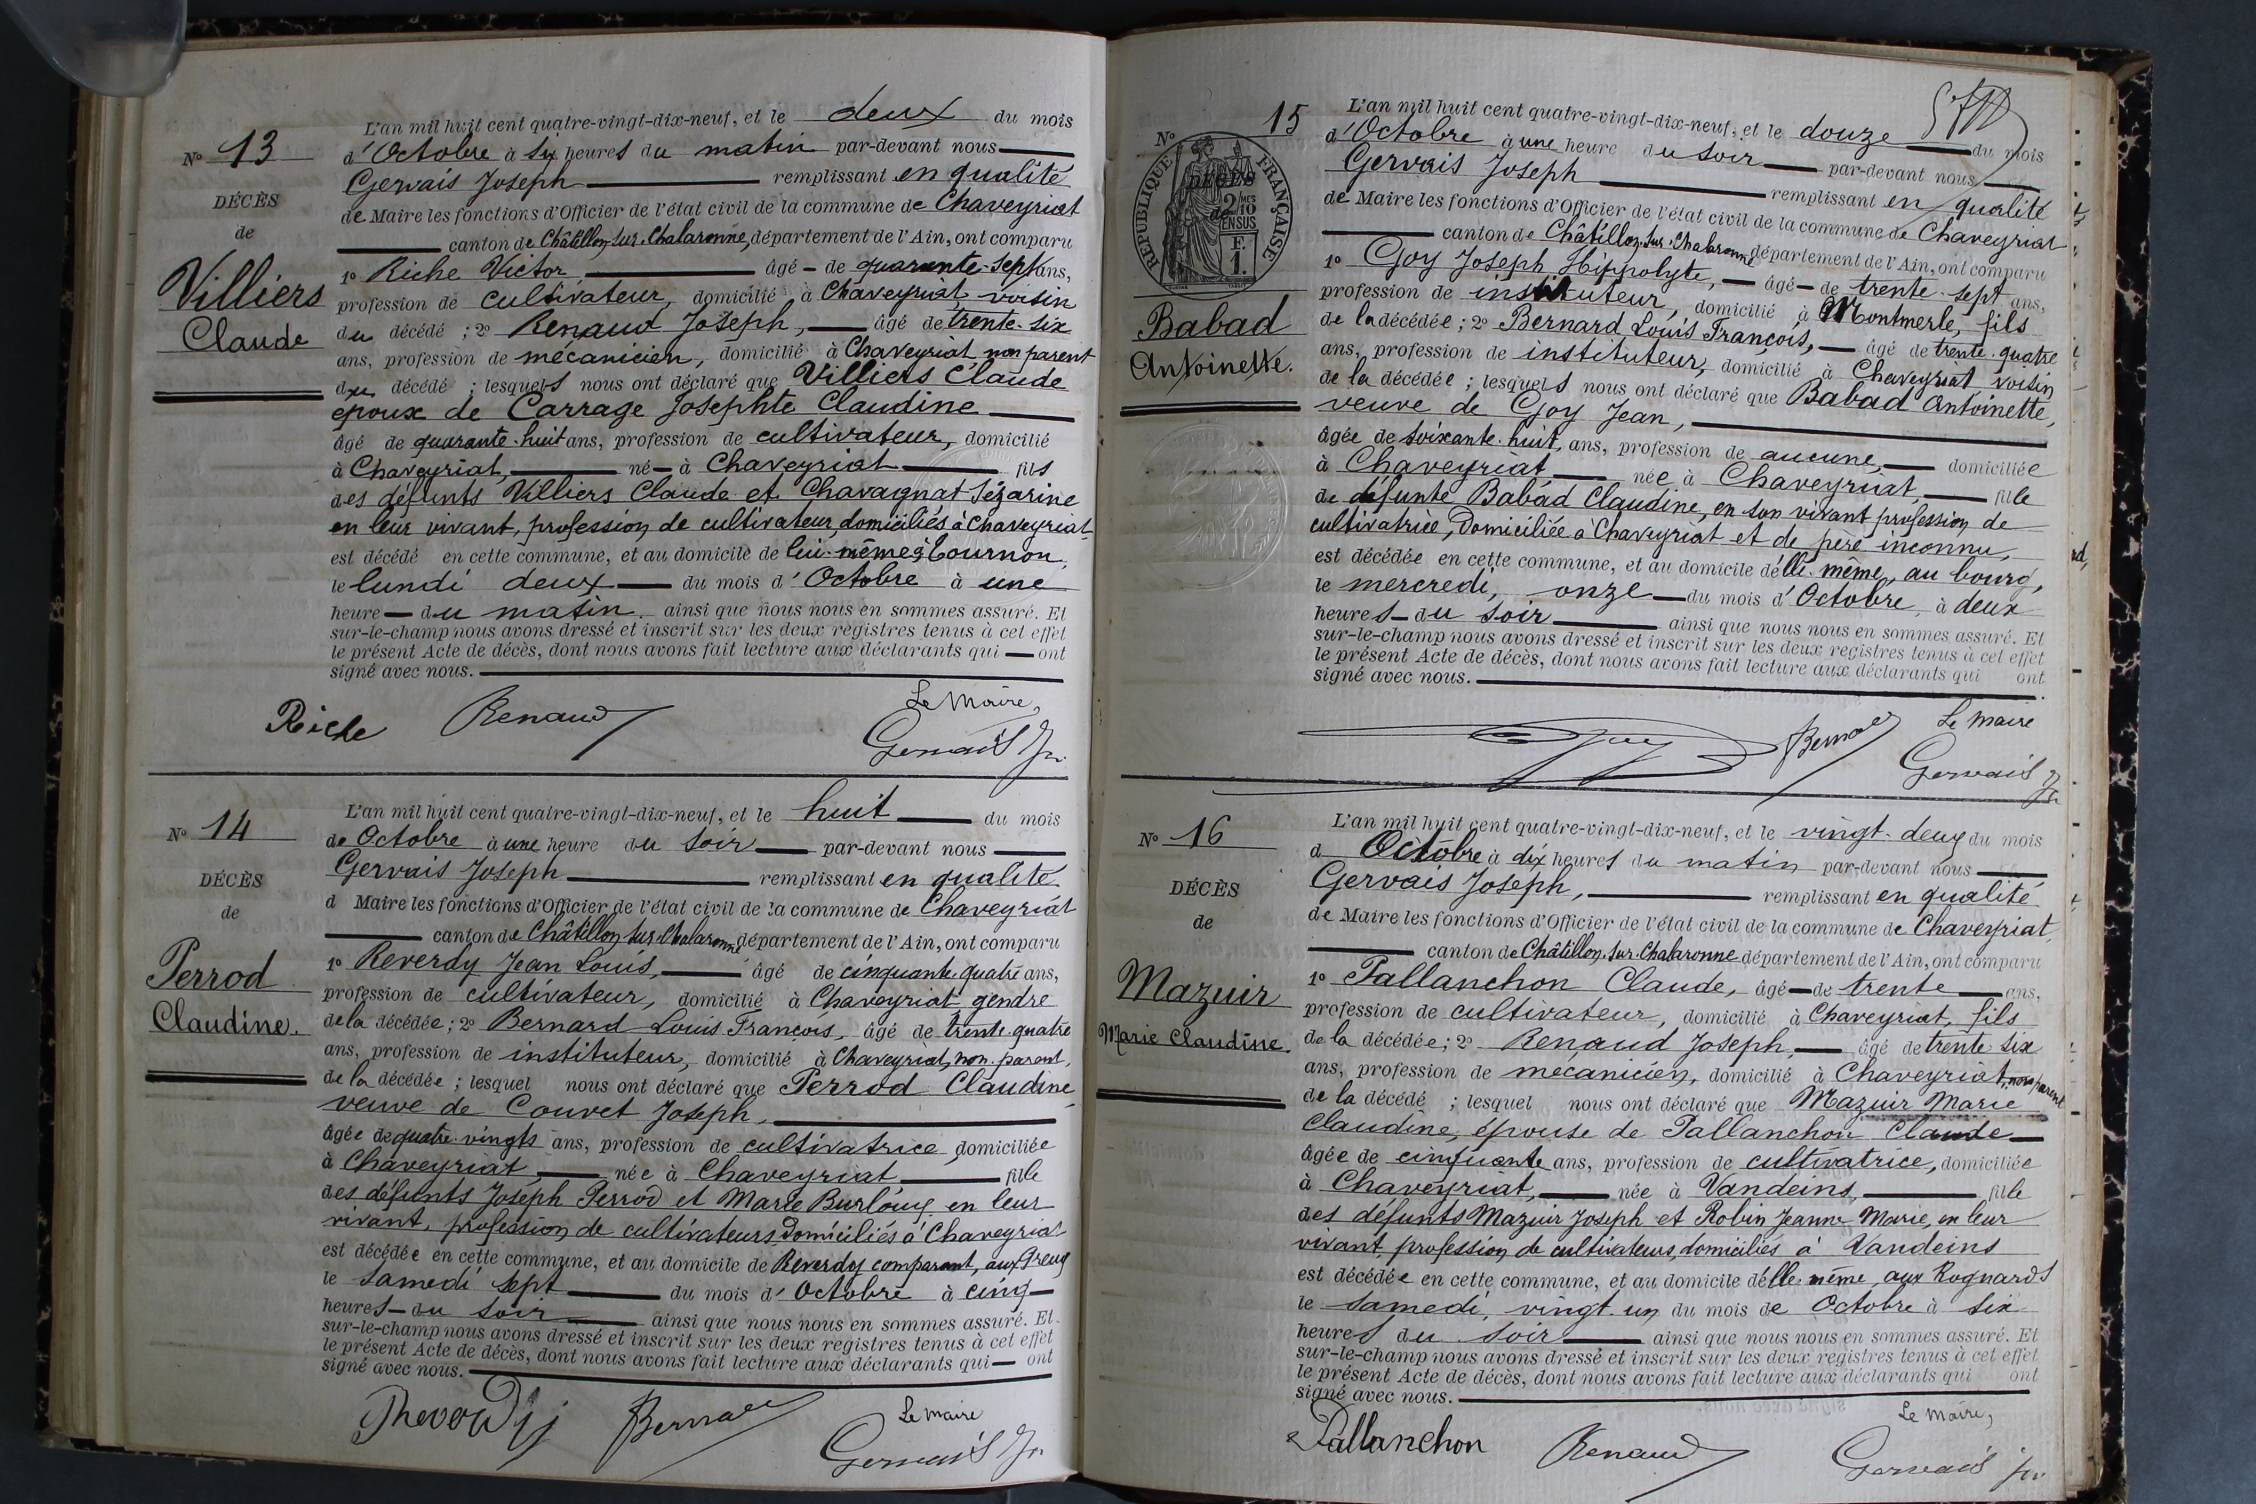 L'an mil huit cent quatre-vingt-dix-neuf, et le deux du mois
No 13
d'Octobre à six heures du matin par-devant nous
Gervais Joseph remplissant en qualité
DÉCÈS
de Maire les fonctions d'Officier de l'état civil de la commune de Chaveyriat
de
canton de Châtillon-sur-Chalaronne, département de l'Ain, ont comparu
Villiers
Claude
1o Riche Victor âgé de quarante-sept ans,
profession de cultivateur, domicilié à Chaveyriat voisin
du décédé ; 2o Renaud Joseph, âgé de trente-six
ans, profession de mécanicien, domicilié à Chaveyriat non parent
du décédé ; lesquels nous ont déclaré que Villiers Claude
époux de Carrage Josephte Claudine
âgé de quarante-huit ans, profession de cultivateur, domicilié
à Chaveyriat, né à Chaveyriat fils
des défunts Villiers Claude et Chavagnat Sézarine
en leur vivant, profession de cultivateur, domiciliés à Chaveyriat
est décédé en cette commune, et au domicile de lui-même à Tournon,
le lundi deux du mois d'Octobre à une
heure du matin ainsi que nous nous en sommes assuré. Et
sur-le-champ nous avons dressé et inscrit sur les deux registres tenus à cet effet
le présent Acte de décès, dont nous avons fait lecture aux déclarants qui ont
signé avec nous.
Le Maire,
Riche Renaud Gervais Jh
L'an mil huit cent quatre-vingt-dix-neuf, et le huit du mois
No 14
de Octobre à une heure du soir par-devant nous
Gervais Joseph remplissant en qualité
DÉCÈS
d Maire les fonctions d'Officier de l'état civil de la commune de Chaveyriat
de
canton de Châtillon-sur-Chalaronne département de l'Ain, ont comparu
Perrod
Claudine.
1o Reverdy Jean Louis, âgé de cinquante quatre ans,
profession de cultivateur, domicilié à Chaveyriat gendre
de la décédée ; 2o Bernard Louis François, âgé de trente-quatre
ans, profession de instituteur, domicilié à Chaveyriat, non parent,
de la décédée ; lesquel nous ont déclaré que Perrod Claudine
veuve de Couvet Joseph,
âgée de quatre-vingts ans, profession de cultivatrice domiciliée
à Chaveyriat, née à Chaveyriat fille
des défunts Joseph Perrod et Marie en leur
vivant, profession de cultivateurs, domiciliés à Chaveyriat
est décédée en cette commune, et au domicile de Reverdy comparant, aux
le samedi sept du mois d'Octobre à cinq
heures du soir ainsi que nous nous en sommes assuré. Et
sur-le-champ nous avons dressé et inscrit sur les deux registres tenus à cet effet
le présent Acte de décès, dont nous avons fait lecture aux déclarants qui ont
signé avec nous.
Le Maire
Bernard Gervais Jh
L'an mil huit cent quatre-vingt-dix-neuf, et le douze du mois
No 15
d'Octobre à une heure du soir par-devant nous
Gervais Joseph remplissant en qualité
RÉPUBLIQUE FRANÇAISE
DÉCÈS
de
2 MES 10
EN SUS
F.
1.
de Maire les fonctions d'Officier de l'état civil de la commune de Chaveyriat
canton de Châtillon-sur-Chalaronne département de l'Ain, ont comparu
Babad
Antoinette.
1o Goy Joseph Hippolyte, âgé de trente-sept ans,
profession de instituteur, domicilié à Montmerle, fils
de la décédée ; 2o Bernard Louis François, âgé de trente-quatre
ans, profession de instituteur, domicilié à Chaveyriat voisin
de la décédée ; lesquels nous ont déclaré que Babad Antoinette,
veuve de Goy Jean,
âgée de soixante-huit, ans, profession de aucune, domiciliée
à Chaveyriat née à Chaveyriat, fille
de défunte Babad Claudine, en son vivant profession de
cultivatrice, Domiciliée à Chaveyriat et de père inconnu,
est décédée en cette commune, et au domicile d'elle-même, au bourg,
le mercredi, onze du mois d'Octobre, à deux
heures du soir ainsi que nous nous en sommes assuré. Et
sur-le-champ nous avons dressé et inscrit sur les deux registres tenus à cet effet
le présent Acte de décès, dont nous avons fait lecture aux déclarants qui ont
signé avec nous.
Le Maire
Goy Bernard Gervais Jh
L'an mil huit cent quatre-vingt-dix-neuf, et le vingt-deux du mois
No 16
d Octobre à dix heures du matin par-devant nous
Gervais Joseph, remplissant en qualité
DÉCÈS
de Maire les fonctions d'Officier de l'état civil de la commune de Chaveyriat,
de
canton de Châtillon-sur-Chalaronne département de l'Ain, ont comparu
Mazuir
Marie Claudine.
1o Pallanchon Claude, âgé de trente ans,
profession de cultivateur, domicilié à Chaveyriat, fils
de la décédée ; 2o Renaud Joseph, âgé de trente-six
ans, profession de mécanicien, domicilié à Chaveyriat, non parent
de la décédé ; lesquel nous ont déclaré que Mazuir Marie
Claudine, épouse de Pallanchon Claude
âgée de cinquante ans, profession de cultivatrice, domiciliée
à Chaveyriat, née à Vandeins, fille
des défunts Mazuir Joseph et Robin Jeanne Marie, en leur
vivant, profession de cultivateurs, domiciliés à Vandeins
est décédée en cette commune, et au domicile d'elle-même, aux Rognards
le samedi, vingt-un du mois de Octobre à six
heures du soir ainsi que nous nous en sommes assuré. Et
sur-le-champ nous avons dressé et inscrit sur les deux registres tenus à cet effet
le présent Acte de décès, dont nous avons fait lecture aux déclarants qui ont
signé avec nous.
Le Maire,
Pallanchon Renaud Gervais Jh